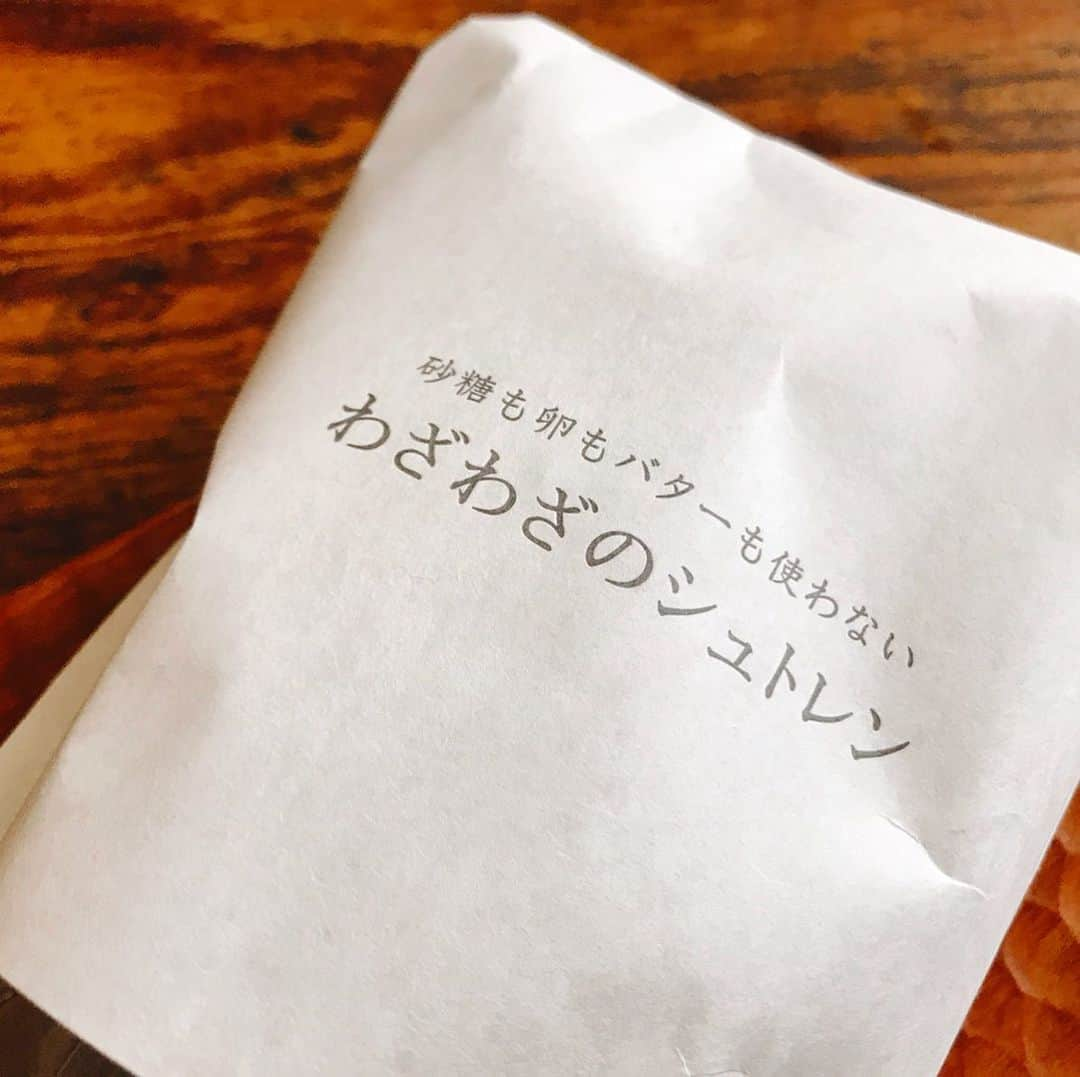 砂糖も卵もバターも使わない
わざわざのシュトレン